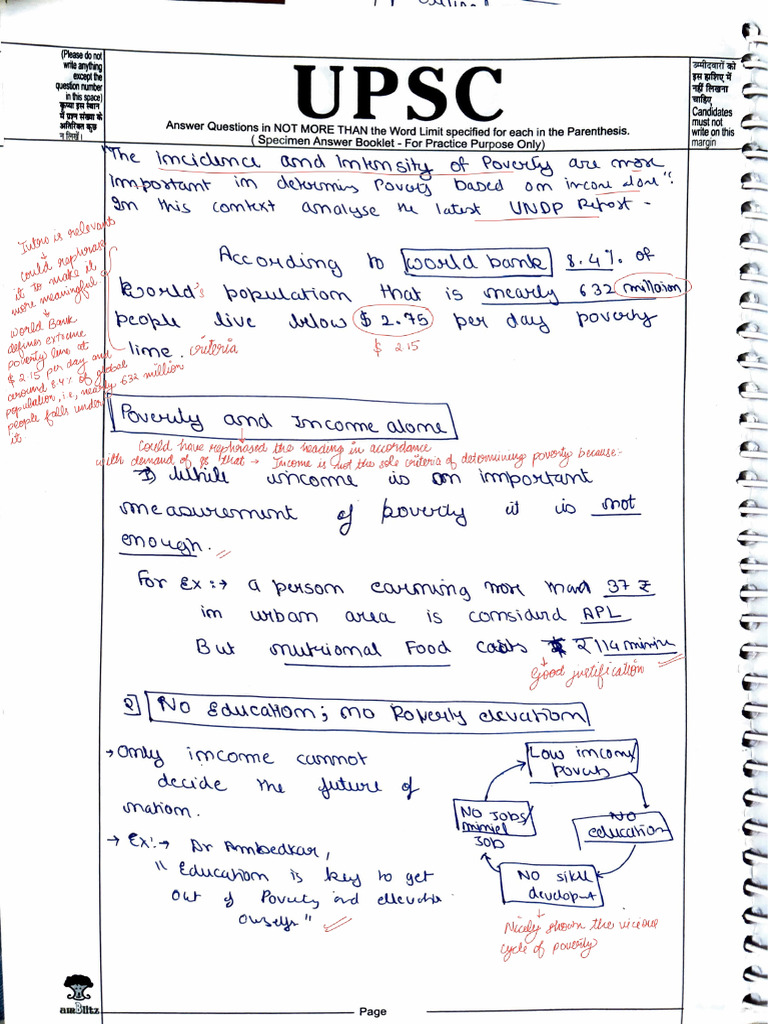 (Please do not
write anything
except the
question number
in this space)
कृपया इस स्थान
में प्रश्न संख्या के
अतिरिक्त कुछ
न लिखें।
UPSC
Answer Questions in NOT MORE THAN the Word Limit specified for each in the Parenthesis.
( Specimen Answer Booklet - For Practice Purpose Only)
उम्मीदवारों को
इस हाशिए में
नहीं लिखना
चाहिए
Candidates
must not
write on this
margin
"The Incidence and Intensity of Poverty are more
important in determins Poverty based on income alone".
In this context analyse the latest UNDP Report -
Intro is relevant
could rephrase
it to make it
more meaningful
World Bank
defines extreme
poverty line at
$ 2.15 per day and
around 8.4% of global
population, i.e, nearly 632 million
people falls under
it
According to World bank 8.4% of
World's population that is nearly 632 millaion
people live below $ 2.75 per day poverty
line. criteria
$ 2.15
Poverity and Income alone
Could have rephrased the heading in accordance
with demand of qs that → Income is not the sole criteria of determining poverty because:-
1) While income is an important
measurement of poverty it is not
enough.
For Ex:→ a person earning more than 37 ₹
in urban area is considerd APL
But nutrional Food costs ₹114 minim
Good justification
2] No Education; no Poverty elevation
→ Only income cannot
decide the future of
nation.
→ Ex:→ Dr Ambedkar,
"Education is key to get
out of Poverty and ellevate
ourself"
Low income/
Poverty
NO
education
No skill
developmt
No Jobs/
miniel
Job
Nicely shown the vicious
cycle of poverty
amBlitz
Page